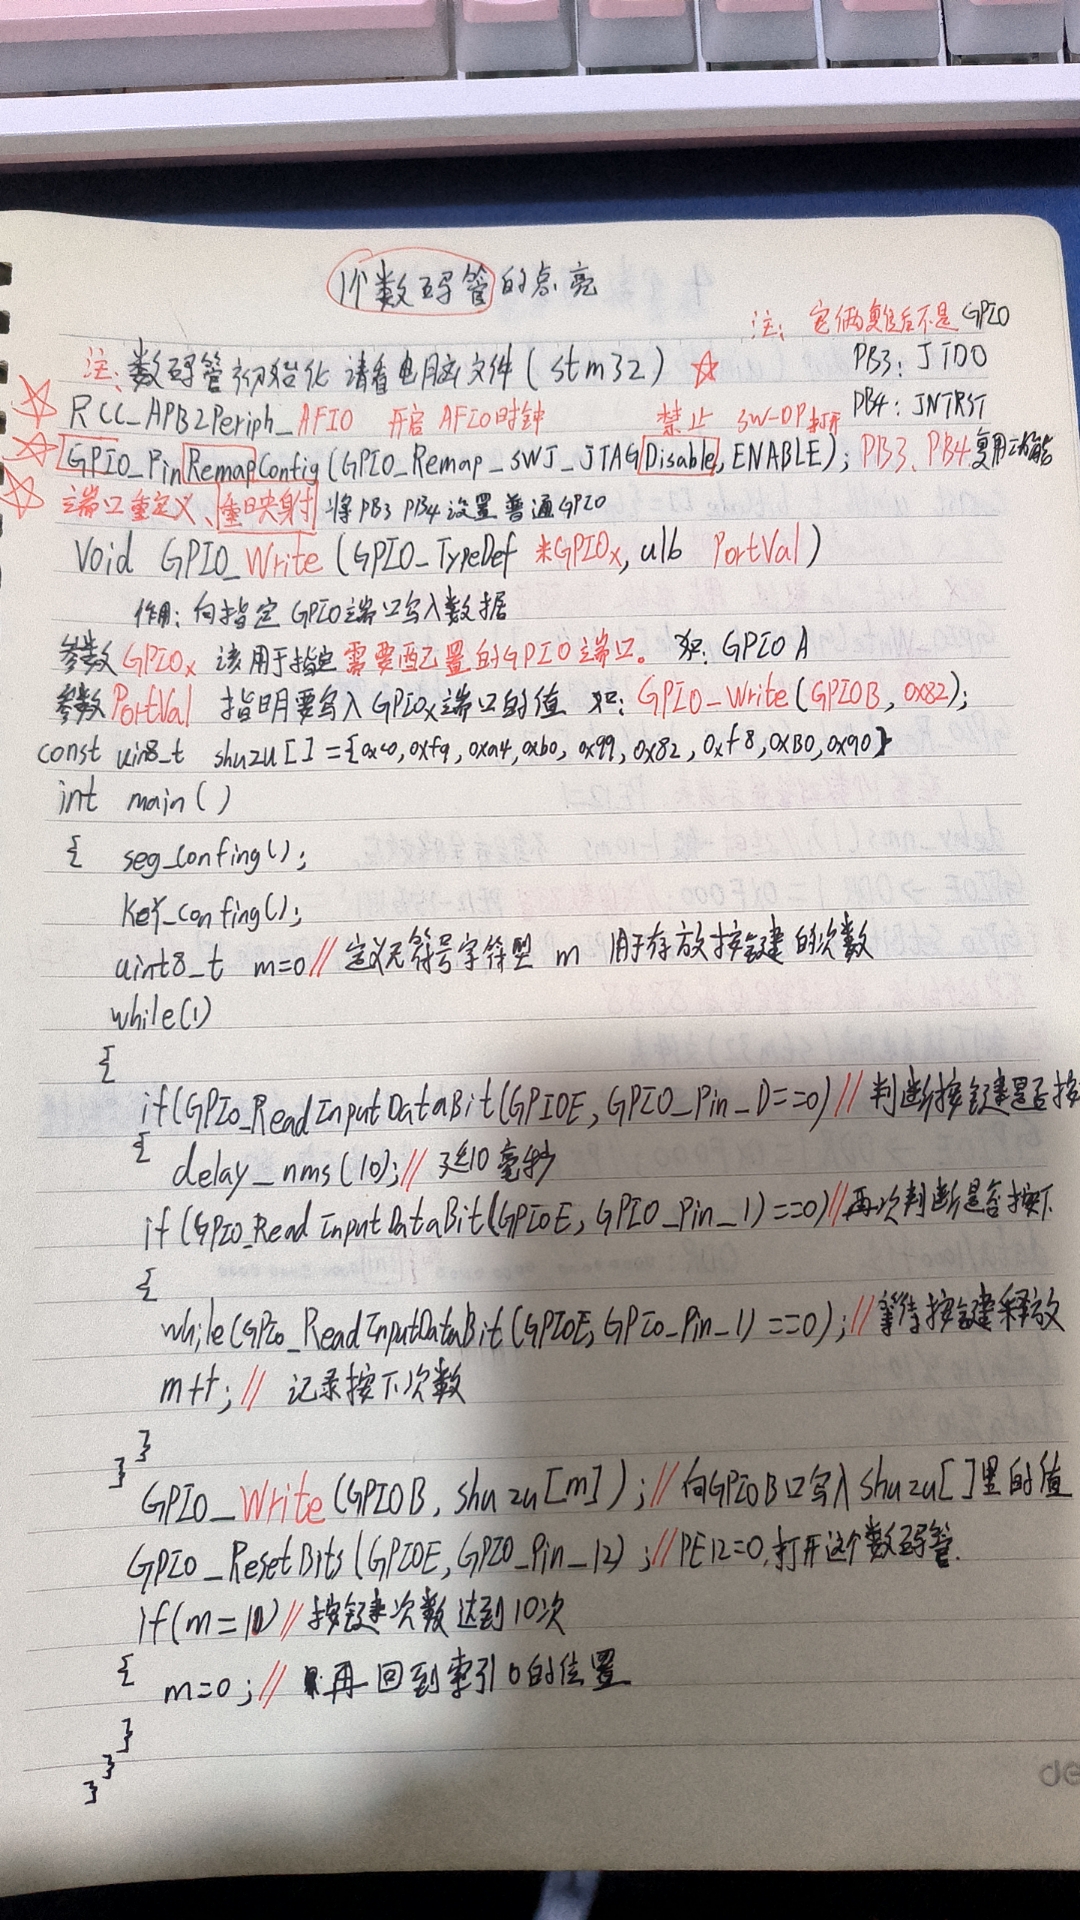 1个数码管的点亮
注：它俩复位后不是GPIO
注：数码管初始化 请看电脑文件(stm32) ☆ PB3：JTDO
RCC_APB2Periph_AFIO 开启AFIO时钟 禁止 SW-DP打开 PB4：JNTRST
GPIO_PinRemapConfig(GPIO_Remap_SWJ_JTAGDisable,ENABLE); PB3、PB4复用功能
端口重定义、重映射 将PB3 PB4设置普通GPIO
Void GPIO_Write(GPIO_TypeDef *GPIOx, u16 PortVal)
作用：向指定GPIO端口写入数据
参数GPIOx 该用于指定需要配置的GPIO端口。如：GPIOA
参数PortVal 指明要写入GPIOx端口的值 如：GPIO_Write(GPIOB,0x82);
const uin8_t shuzu[]={0xc0,0xf9,0xa4,0xb0,0x99,0x82,0xf8,0xB0,0x90}
int main()
{ seg_Confing();
KeY_confing();
uint8_t m=0//定义无符号字符型 m 用于存放按键的次数
while(1)
{
if(GPIO_ReadInputDataBit(GPIOE,GPIO_Pin_1)==0)//判断按键是否按
{ delay_nms(10);//延10毫秒
if(GPIO_ReadInputDataBit(GPIOE,GPIO_Pin_1)==0)//再次判断是否按下
{
while(GPIO_ReadInputDataBit(GPIOE,GPIO_Pin_1)==0);//等待按键释放
m++;// 记录按下次数
}
}
GPIO_Write(GPIOB,shuzu[m]);//向GPIOB口写入shuzu[]里的值
GPIO_ResetBits(GPIOE,GPIO_Pin_12);//PE12=0,打开这个数码管.
if(m=10)//按键次数达到10次
{ m=0;// 再回到索引0的位置
}
}
}
de